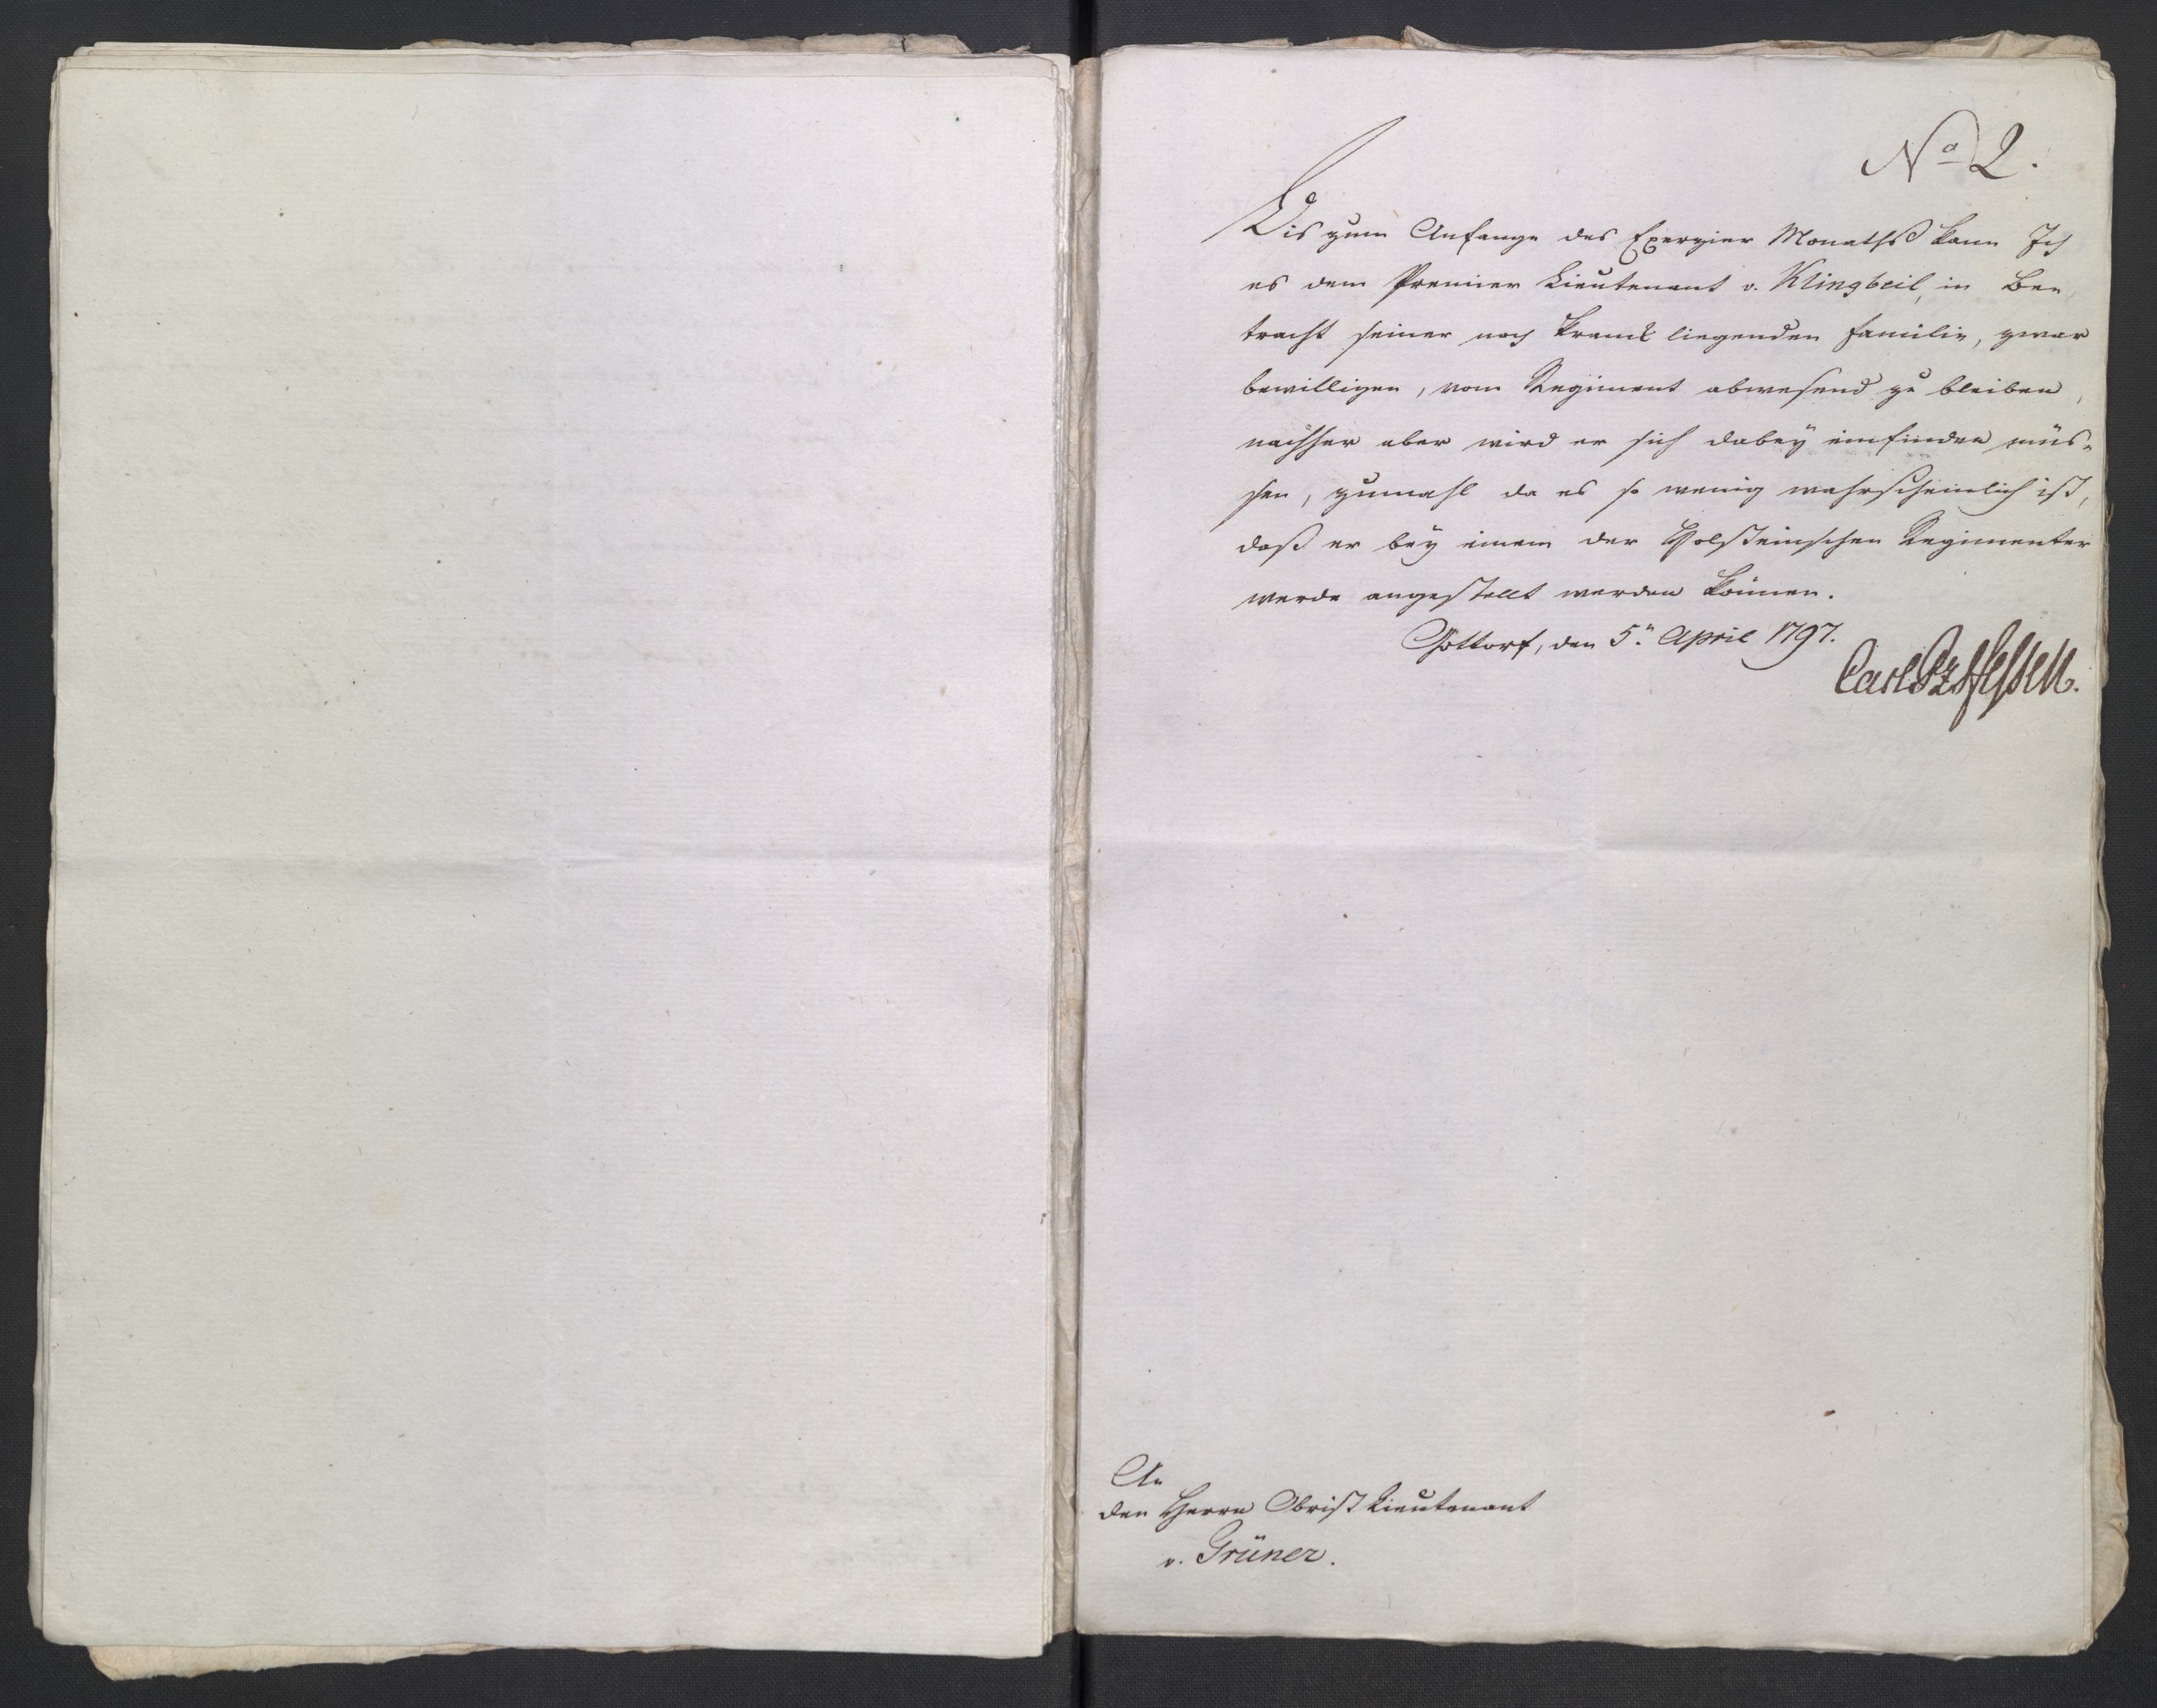 No 2.
Bis zum Anfange des Exerzier Monathß kann Ich
es dem Premier Lieutenant v. Klingbeil, in Be-
tracht seiner noch kranck liegenden Familie, zwar
bewilligen, vom Regiment abwesend zu bleiben,
nachher aber wird er sich dabey einfinden müs-
sen, zumahl da es so wenig wahrscheinlich ist,
daß er bey einem der Holsteinschen Regimenter
werde angestellt werden können.
Gottorf, den 5n April 1797.
Carl Pz Hessen.
An
den Herrn Obrist Lieutenant
v. Grüner.